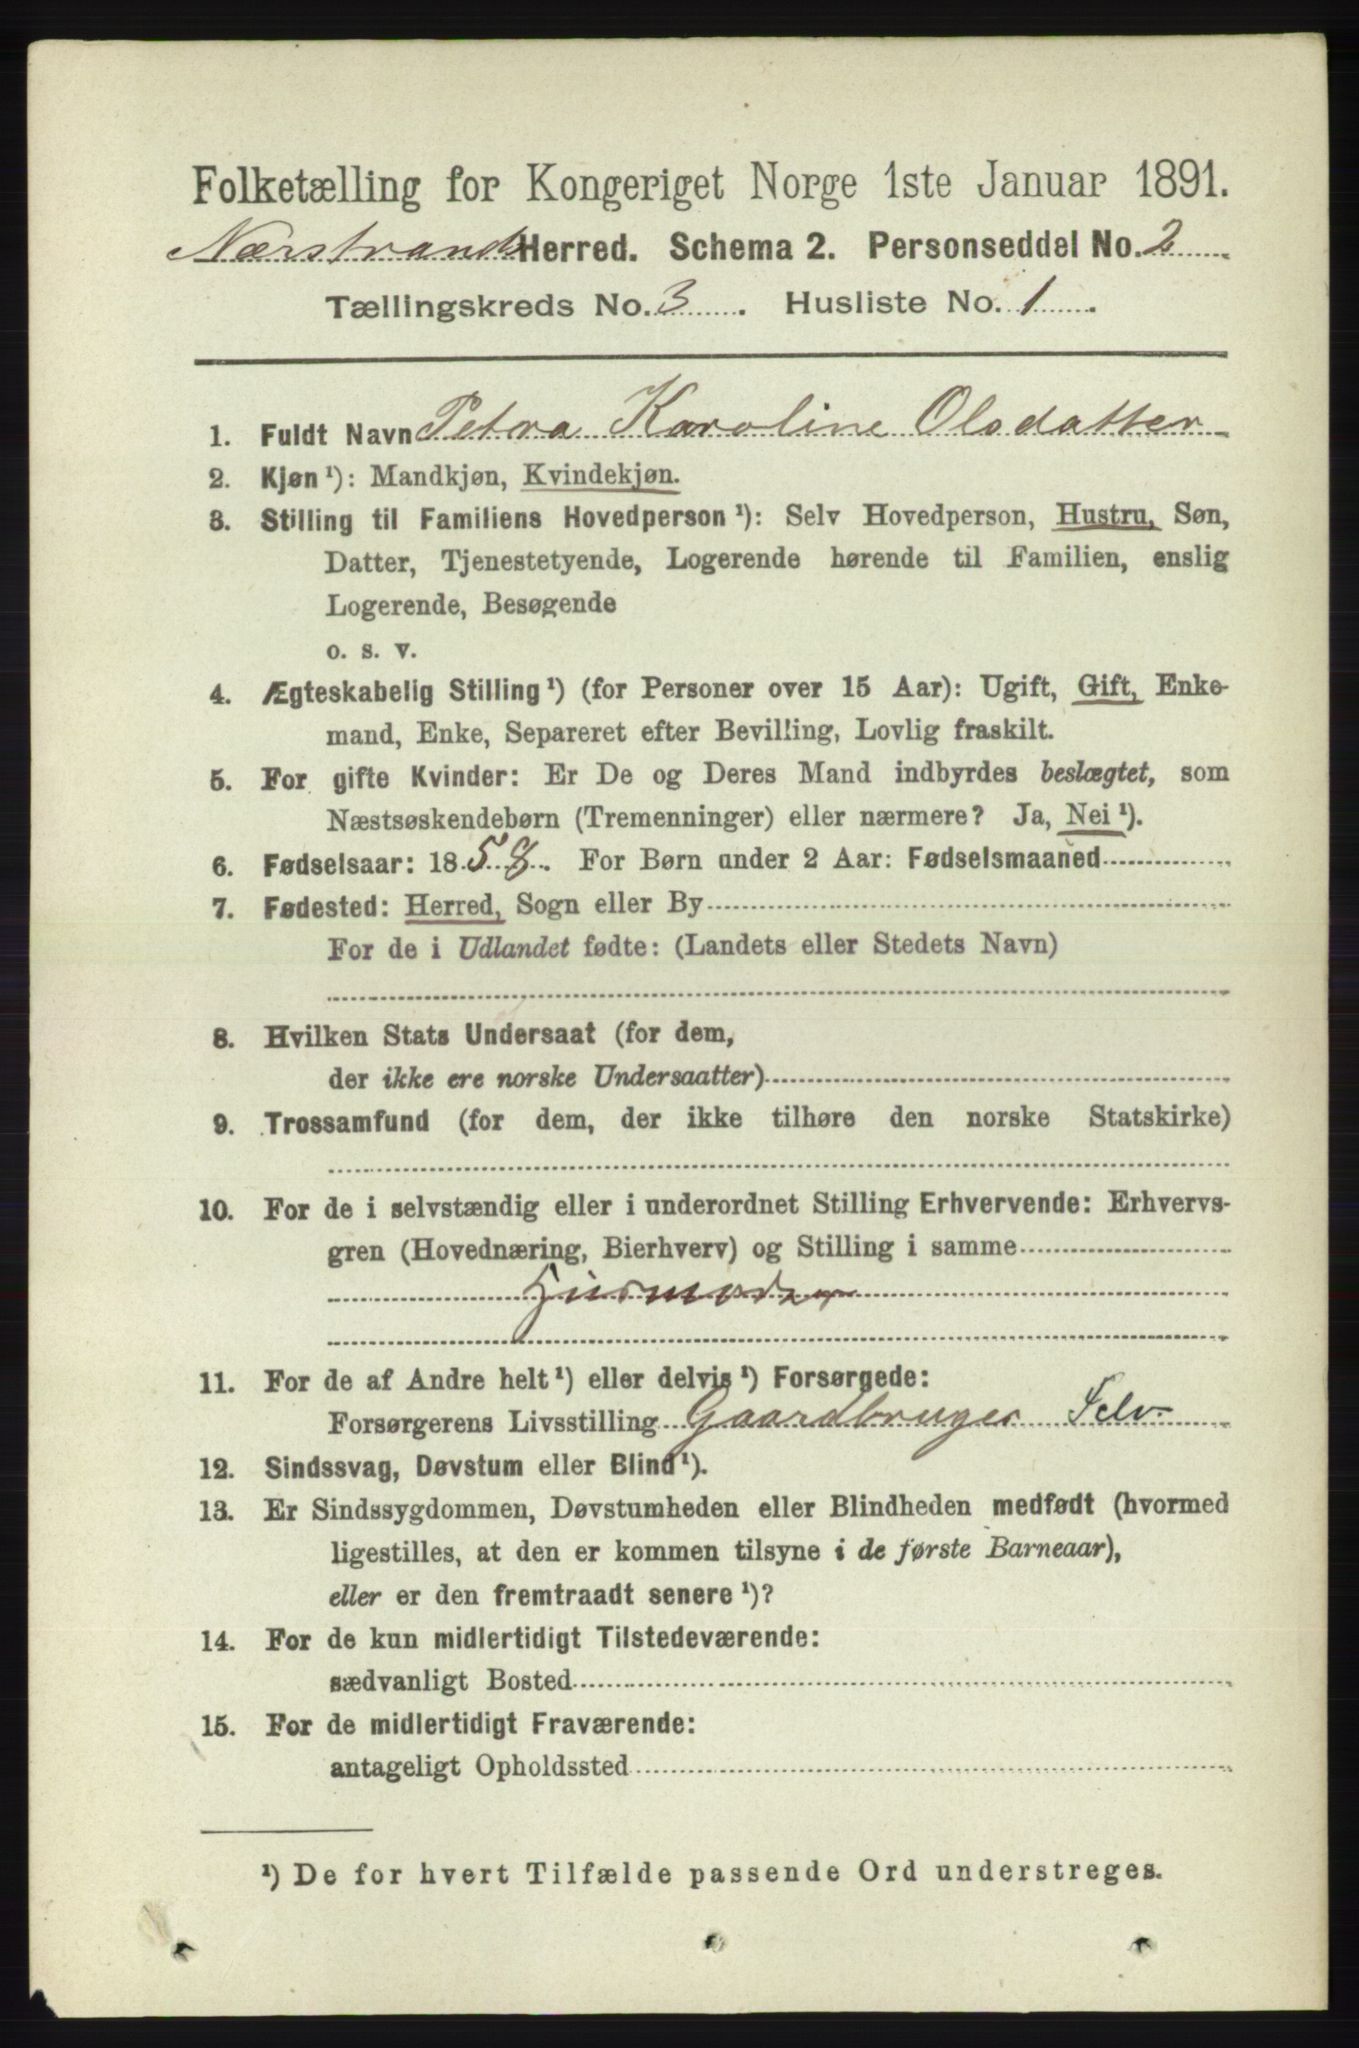 Folketælling for Kongeriget Norge 1ste Januar 1891.
Nærstrands Herred. Schema 2. Personseddel No. 2
Tællingskreds No. 3. Husliste No. 1.
1. Fuldt Navn Petra Karoline Olsdatter
2. Kjøn ¹): Mandkjøn, Kvindekjøn.
3. Stilling til Familiens Hovedperson ¹): Selv Hovedperson, Hustru, Søn,
Datter, Tjenestetyende, Logerende hørende til Familien, enslig
Logerende, Besøgende
o. s. v.
4. Ægteskabelig Stilling ¹) (for Personer over 15 Aar): Ugift, Gift, Enke-
mand, Enke, Separeret efter Bevilling, Lovlig fraskilt.
5. For gifte Kvinder: Er De og Deres Mand indbyrdes beslægtet, som
Næstsøskendebørn (Tremenninger) eller nærmere? Ja, Nei ¹).
6. Fødselsaar: 1858. For Børn under 2 Aar: Fødselsmaaned
7. Fødested: Herred, Sogn eller By
For de i Udlandet fødte: (Landets eller Stedets Navn)
8. Hvilken Stats Undersaat (for dem,
der ikke ere norske Undersaatter)
9. Trossamfund (for dem, der ikke tilhøre den norske Statskirke)
10. For de i selvstændig eller i underordnet Stilling Erhvervende: Erhvervs-
gren (Hovednæring, Bierhverv) og Stilling i samme
Husmoder
11. For de af Andre helt ¹) eller delvis ¹) Forsørgede:
Forsørgerens Livsstilling Gaardbruger Selv
12. Sindssvag, Døvstum eller Blind ¹).
13. Er Sindssygdommen, Døvstumheden eller Blindheden medfødt (hvormed
ligestilles, at den er kommen tilsyne i de første Barneaar),
eller er den fremtraadt senere ¹)?
14. For de kun midlertidigt Tilstedeværende:
sædvanligt Bosted
15. For de midlertidigt Fraværende:
antageligt Opholdssted
¹) De for hvert Tilfælde passende Ord understreges.